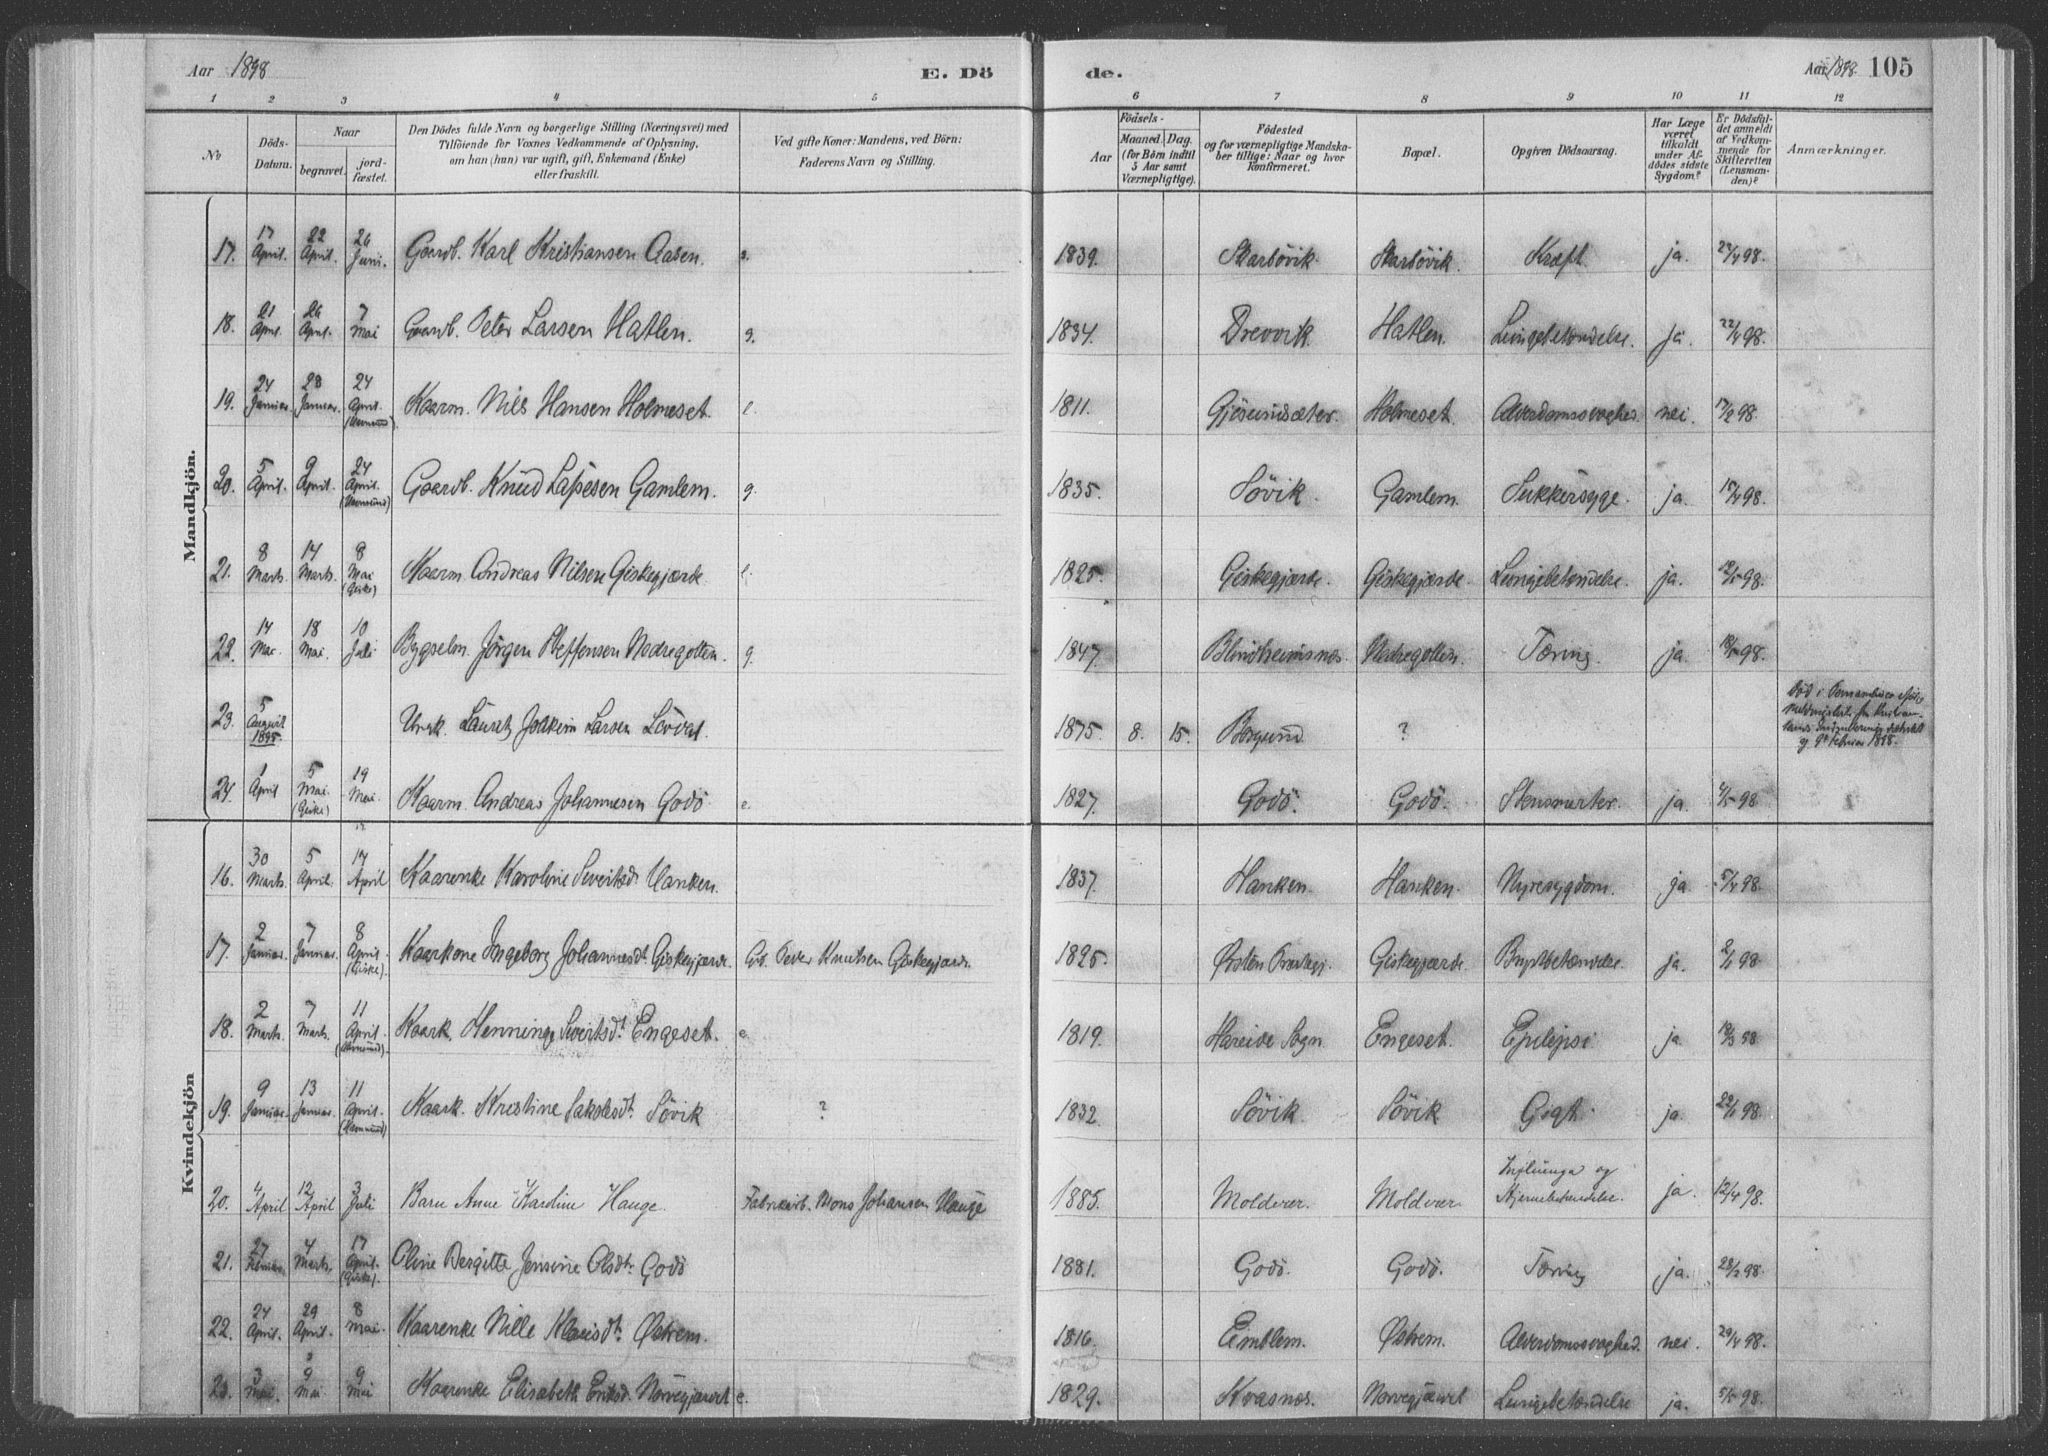 Aar 1898 E. Dö de. Aar 1898. 105
1 2 3 4 5 6 7 8 9 10 11 12
No
Döds-Datum.
Naar
begravet.
jord-fæstet.
Den Dödes fulde Navn og borgerlige Stilling (Næringsvei) med
Tilföiende for Voxnes Vedkommende af Oplysning,
om han (hun) var ugift, gift, Enkemand (Enke)
eller fraskilt.
Ved gifte Koner: Mandens, ved Börn:
Faderens Navn og Stilling.
Födsels-
Aar
Maaned. Dag.
(for Börn indtil
5 Aar samt
Værnepligtige).
Födested
og for værnepligtige Mandska-
ber tillige: Naar og hvor
konfirmeret.
Bopæl.
Opgiven Dödsaarsag.
Har Læge
været
tilkaldt
under Af-
dødes sidste
Sygdom?
Er Dödsfal-
det anmeldt
af Vedkom-
mende for
Skifteretten
(Lensman-
den)?
Anmærkninger.
Mandkjön.
17. 17 April. 22 April. 26 Juni. Gaardb. Karl Kristiansen Aasen. 1839. Skarbövik. Skarbövik. Kræft. ja. 27/4 98.
18. 21 April. 26 April. 7 Mai Gaardb. Peter Larsen Hatlen. g. 1834. Drevvik. Hatlen. Lungebetændelse. ja. 22/4 98.
19. 24 Januar. 28 Januar. 24 April. Kaarm. Nils Hansen Holmeset. e. 1811. Gjösundsæter. Holmeset. Alderdomssvaghed nei. 17/2 98.
20. 5 April. 9 April. 24 April. Gaardb. Knud Lassesen Gamlem. g. 1835. Sövik. Gamlem. Sukkersyge. ja. 15/4 98.
21. 8 Marts. 14 Marts. 8 Mai (Giske) Kaarm. Andreas Nilsen Giskegjærde. e. 1825. Giskegjærde. Giskegjærde. Lungebetændelse. ja.
22. 14 Mai. 18 Mai. 10 Juli Bygselm. Jörgen Steffensen Nedregotten. g. 1847. Blindheimsnes. Nedregotten. Tæring. ja. 18/5 98.
23. 5 August 1895. Ungk. Laurits Joakim Larsen Lövdal. 1875 8. 15. Borgund. ? Död i Pernambuco
9de Februar 1898.
24. 1 April 5 Mai (Giske) 19 Mai. Kaarm. Andreas Johannesen Godö. e. 1827. Godö. Godö. Stensmerter. ja. 4/5 98
Kvindekjön
16. 30 Marts. 5 April. 17 April Kaarenke Karoline Sivertsd. Hanken. 1837. Hanken. Hanken. Nyresygdom. ja. 5/4 98.
17. 2 Januar. 7 Januar. 8 April. (Giske) Kaarkone Ingeborg Johannesdt. Giskegjærde. Gb. Peder Knutsen Giskegjærde. 1825. Ørsten Præstegj. Giskegjærde. Brystbetændelse. ja. 2/1 98
18. 2 Marts. 7 Marts. 11 April. Kaark. Henninge Sivertsdt. Engeset. e. 1819. Hareide Sogn Engeset. Epilepsi ja.
19. 9 Januar. 13 Januar. 11 April. Kaark. Kristine Jakobsdt. Sövik ? 1832. Sövik. Sövik Gigt. ja. 22/1 98.
20. 4 April 12 April 3 Juli Barn Anne Karoline Hauge. Fabrikarb. Mons Johansen Hauge 1885. Moldvær. Moldvær Influenza og
Hjernebetændelse. ja. 12/4 98.
21. 27 Februar. 4 Marts. 17 April. (Giske). Oline Bergitte Jensine Olsdtr. Godö 1881. Godö. Godö. Tæring ja. 28/2 98.
22. 24 April. 29 April. 8 Mai. Kaarenke Nille Klausdt. Østrem. 1816. Emblem. Østrem. Alderdomssvaghed. nei. 29/4 98.
23. 3 Mai. 9 Mai 9 Mai Kaarenke Elisabeth Eriksd. Norvegjæret e. 1829. Kvasnes. Norvegjæret Lungebetændelse ja. 5/5 98.